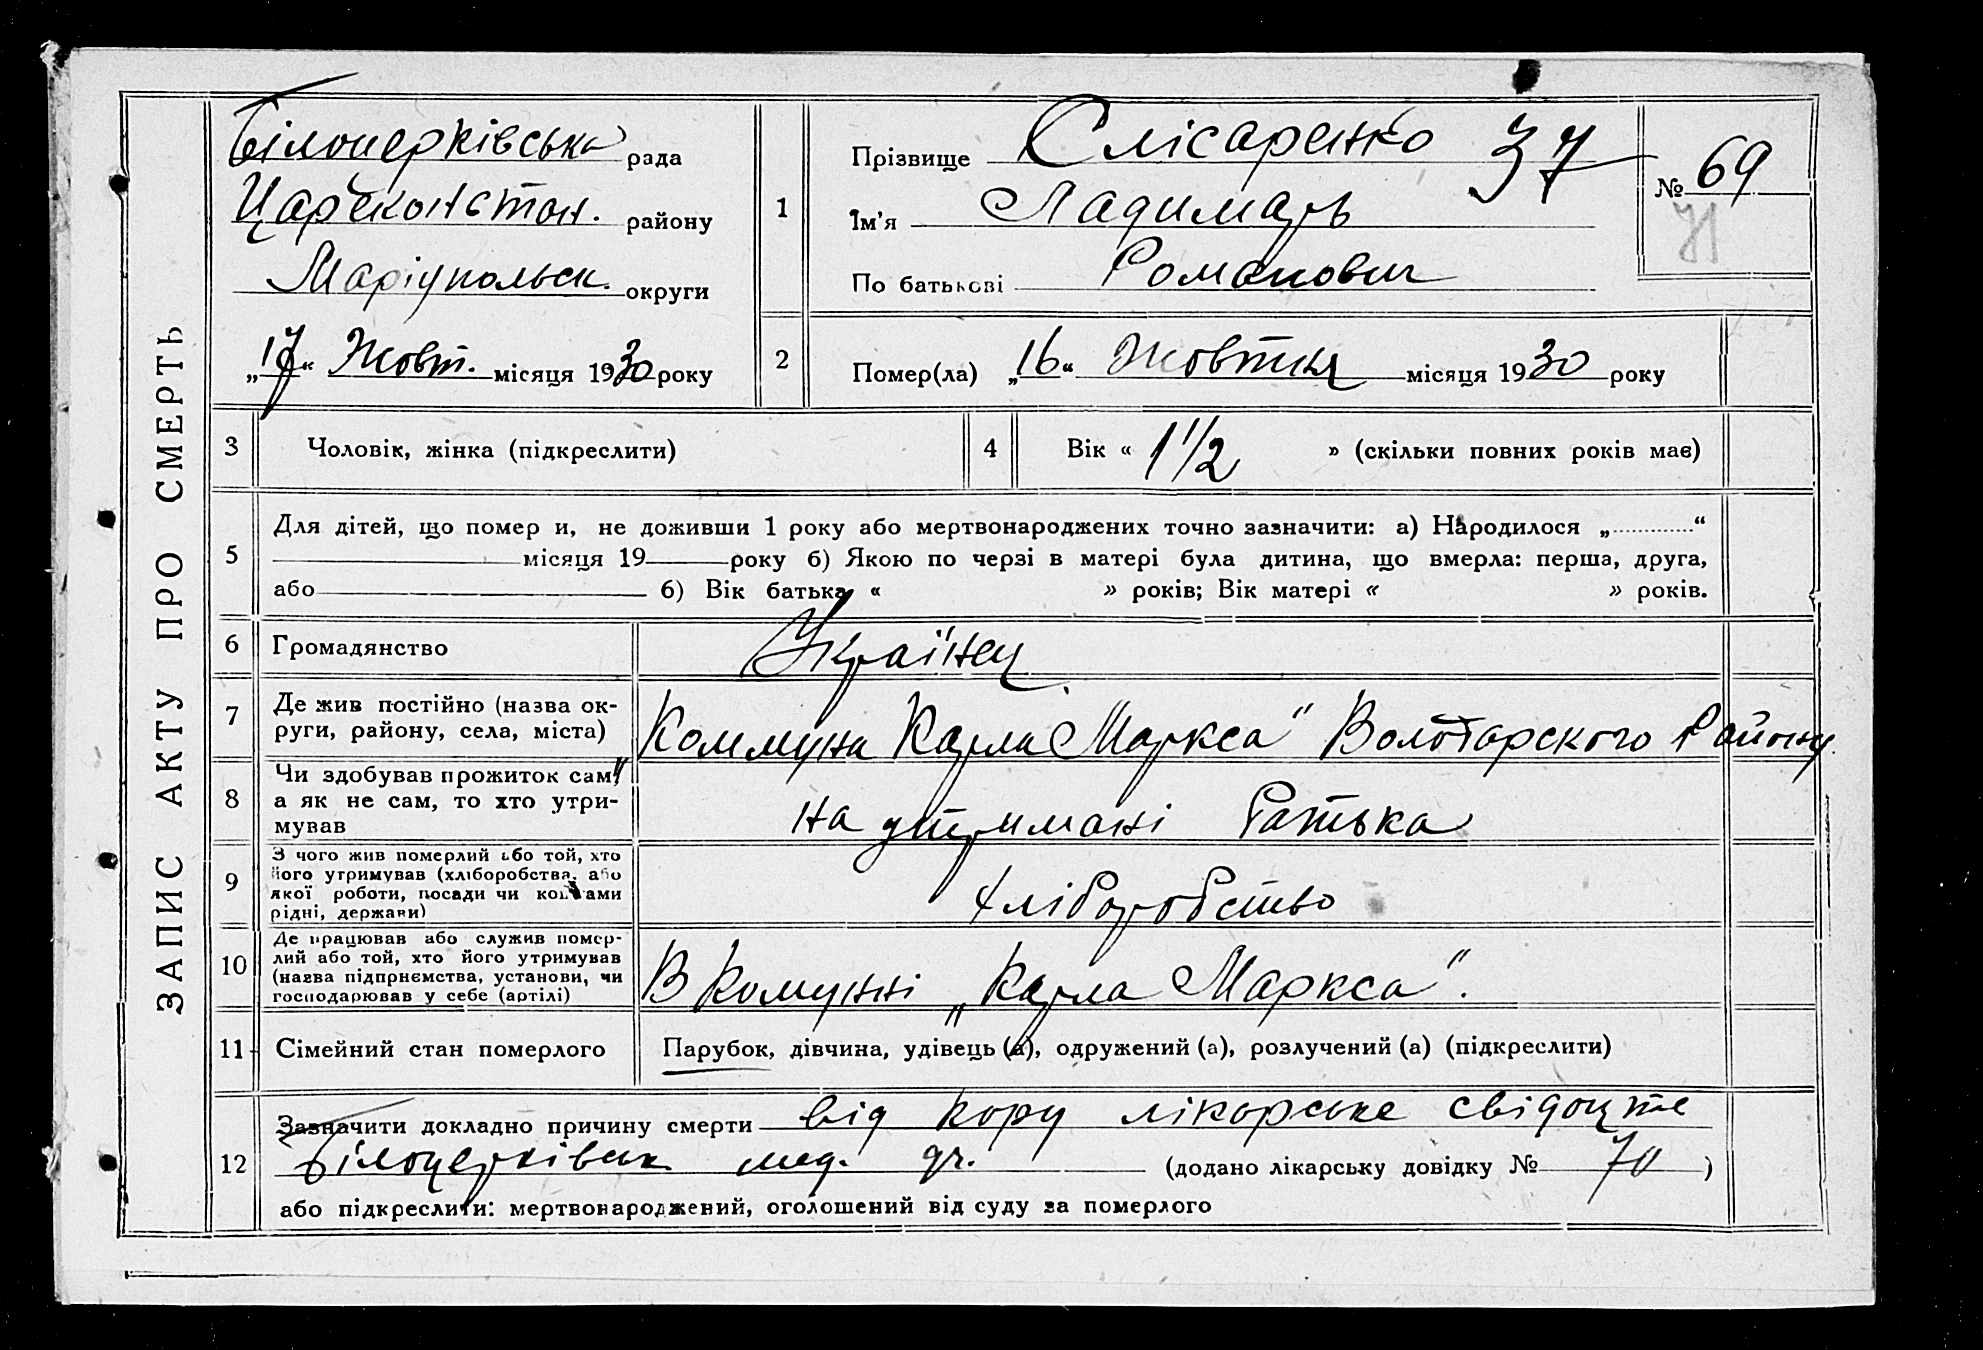 ЗАПИС АКТУ ПРО СМЕРТЬ
Білоцерківська рада
Цареконстон. району
Маріупольськ. округи
„17“ Жовт. місяця 1930 року
1
Прізвище Слісаренко 37
Ім'я Ладимаръ
По батькові Романович
№ 69
71
2
Помер(ла) „16“ Жовтня місяця 1930 року
3 Чоловік, жінка (підкреслити)
4 Вік « 1 1/2 » (скільки повних років має)
5
Для дітей, що помер и, не доживши 1 року або мертвонароджених точно зазначити: а) Народилося „ “
місяця 19 року б) Якою по черзі в матері була дитина, що вмерла: перша, друга,
або б) Вік батька « » років; Вік матері « » років.
6 Громадянство Українец
7 Де жив постійно (назва ок-
руги, району, села, міста)
Коммуна Карла Маркса" Волотарского району
8 Чи здобував прожиток сам,
а як не сам, то хто утри-
мував
на утримані батька
9 З чого жив померлий або той, хто
його утримував (хліборобства, або
якої роботи, посади чи коштами
рідні, держави)
хліборобство
10 Де працював або служив помер-
лий або той, хто його утримував
(назва підприємства, установи, чи
господарював у себе (артілі)
В комунні „Карла Маркса".
11 Сімейний стан померлого Парубок, дівчина, удівець (а), одружений (а), розлучений (а) (підкреслити)
12
Зазначити докладно причину смерти від кору лікорське свідоцтве
Білоцерківськ мед. дг. (додано лікарську довідку № 70 )
або підкреслити: мертвонароджений, оголошений від суду за померлого